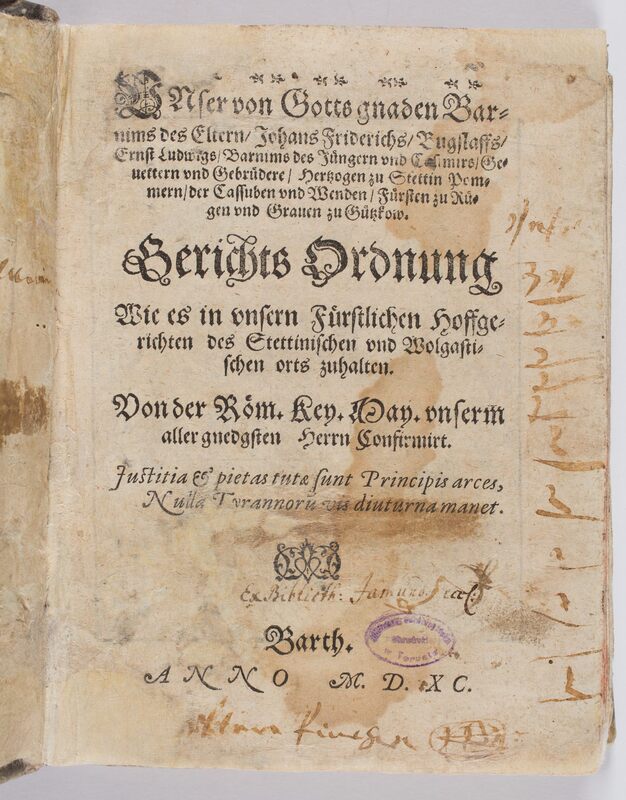 VNser von Gotts gnaden Bar-
nims des Eltern/ Johans Friderichs/ Bugslaffs/
Ernst Ludwigs/ Barnims des Jüngern vnd Casimirs/ Ge-
uettern vnd Gebrüdere/ Hertzogen zu Stettin Pom-
mern/ der Cassuben vnd Wenden/ Fürsten zu Rü-
gen vnd Grauen zu Gützkow.
Gerichts Ordnung
Wie es in vnsern Fürstlichen Hoffge-
richten des Stettinischen vnd Wolgasti-
schen orts zuhalten.
Von der Röm. Key. May. vnserm̃
aller gnedgsten Herrn Confirmirt.
Justitia & pietas tutæ sunt Principis arces,
Nulla Tyrannorũ vis diuturna manet.
Ex Biblioth:
Barth.
ANNO M. D. XC.